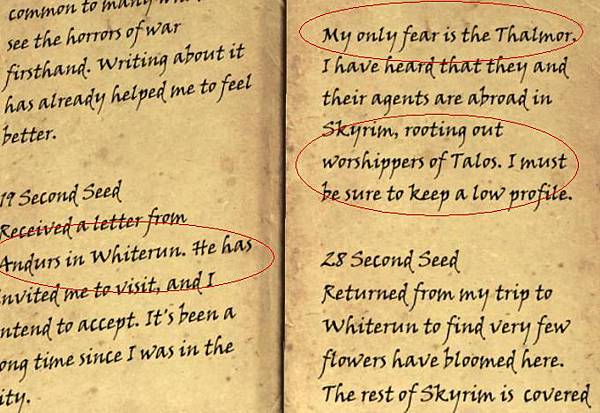 common to many
see the horrors of war
firsthand. Writing about it
has already helped me to feel
better.
19 Second Seed
Received a letter from
Andurs in Whiterun. He has
invited me to visit, and I
ntend to accept. It's been a
ong time since I was in the
ity.
My only fear is the Thalmor.
I have heard that they and
their agents are abroad in
Skyrim, rooting out
worshippers of Talos. I must
be sure to keep a low profile.
28 Second Seed
Returned from my trip to
Whiterun to find very few
flowers have bloomed here.
The rest of Skyrim is covered